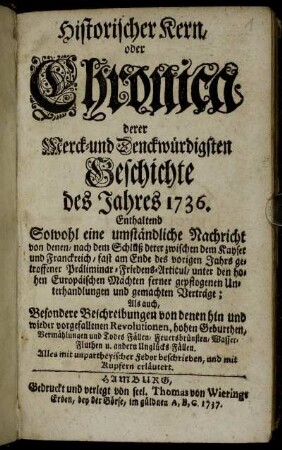 Historischer Kern,
oder
Chronica
derer
Merck- und Denckwürdigsten
Geschichte
des Jahres 1736.
Enthaltend
Sowohl eine umständliche Nachricht
von denen, nach dem Schluß derer zwischen dem Kayser
und Franckreich, fast am Ende des vorigen Jahrs ge-
troffener Präliminar-Friedens-Articul, unter den ho-
hen Europäischen Mächten ferner gepflogenen Un-
terhandlungen und gemachten Verträge;
Als auch,
Besondere Beschreibungen von denen hin und
wieder vorgefallenen Revolutionen, hohen Geburthen,
Vermählungen und Todes Fällen, Feuersbrünsten, Wasser-
Fluthen u. andern Unglücks-Fällen.
Alles mit unpartheyischer Feder beschrieben, und mit
Kupfern erläutert.
HAMBURG,
Gedruckt und verlegt von seel. Thomas von Wierings
Erben, bey der Börse, im güldnen A, B, C. 1737.